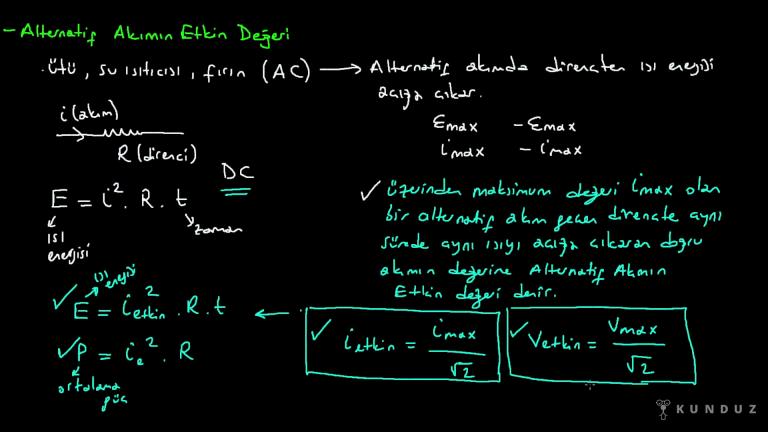 - Alternatif Akımın Etkin Değeri
. ütü, su ısıtıcısı, fırın (AC) → Alternatif akımda dirençten ısı enerjisi
açığa çıkar.
i (akım)
R (direnci)
εmax - εmax
imax - imax
DC
E = i². R. t
ısı
enerjisi
zaman
✓ üzerinden maksimum değeri imax olan
bir alternatif akım geçen dirençte aynı
sürede aynı ısıyı açığa çıkaran doğru
akımın değerine Alternatif Akımın
Etkin değeri denir.
ısı enerjisi
✓ E = ietkin². R. t ←
✓ ietkin = imax / √2
✓ Vetkin = Vmax / √2
✓ P = ie². R
ortalama
güç
KUNDUZ